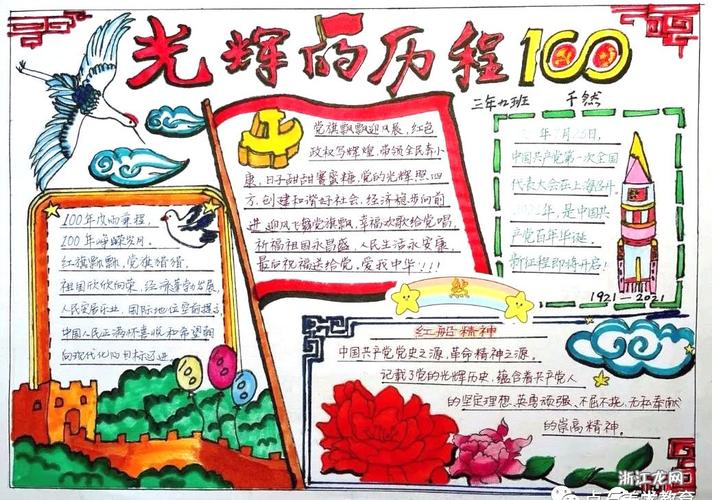 光辉的历程100
三年九班 千然
党旗飘飘迎风展,红色
政权写辉煌,带领全民奔小
康,日子甜甜赛蜜糖,党的光辉照四
方,创建和谐好社会,经济稳步向前
进,迎风飞舞党旗飘,幸福欢歌给党唱,
祈福祖国永昌盛,人民生活永安康,
最后祝福送给党,爱我中华!!!
年7月23日,
中国共产党第一次全国
代表大会在上海召开。
年,是中国共
产党百年华诞,
新征程即将开启!
1921—2021
100年风雨兼程,
100年峥嵘岁月,
红旗飘飘,党旗猎猎,
祖国欣欣向荣,经济蓬勃发展,
人民安居乐业,国际地位空前提
中国人民正满怀喜悦和希望朝
向现代化的目标迈进。
然
红船精神
中国共产党党史之源,革命精神之源。
记载了党的光辉历史,蕴含着共产党人
的坚定理想、英勇顽强、不屈不挠、无私奉献
的崇高精神。
浙江龙网